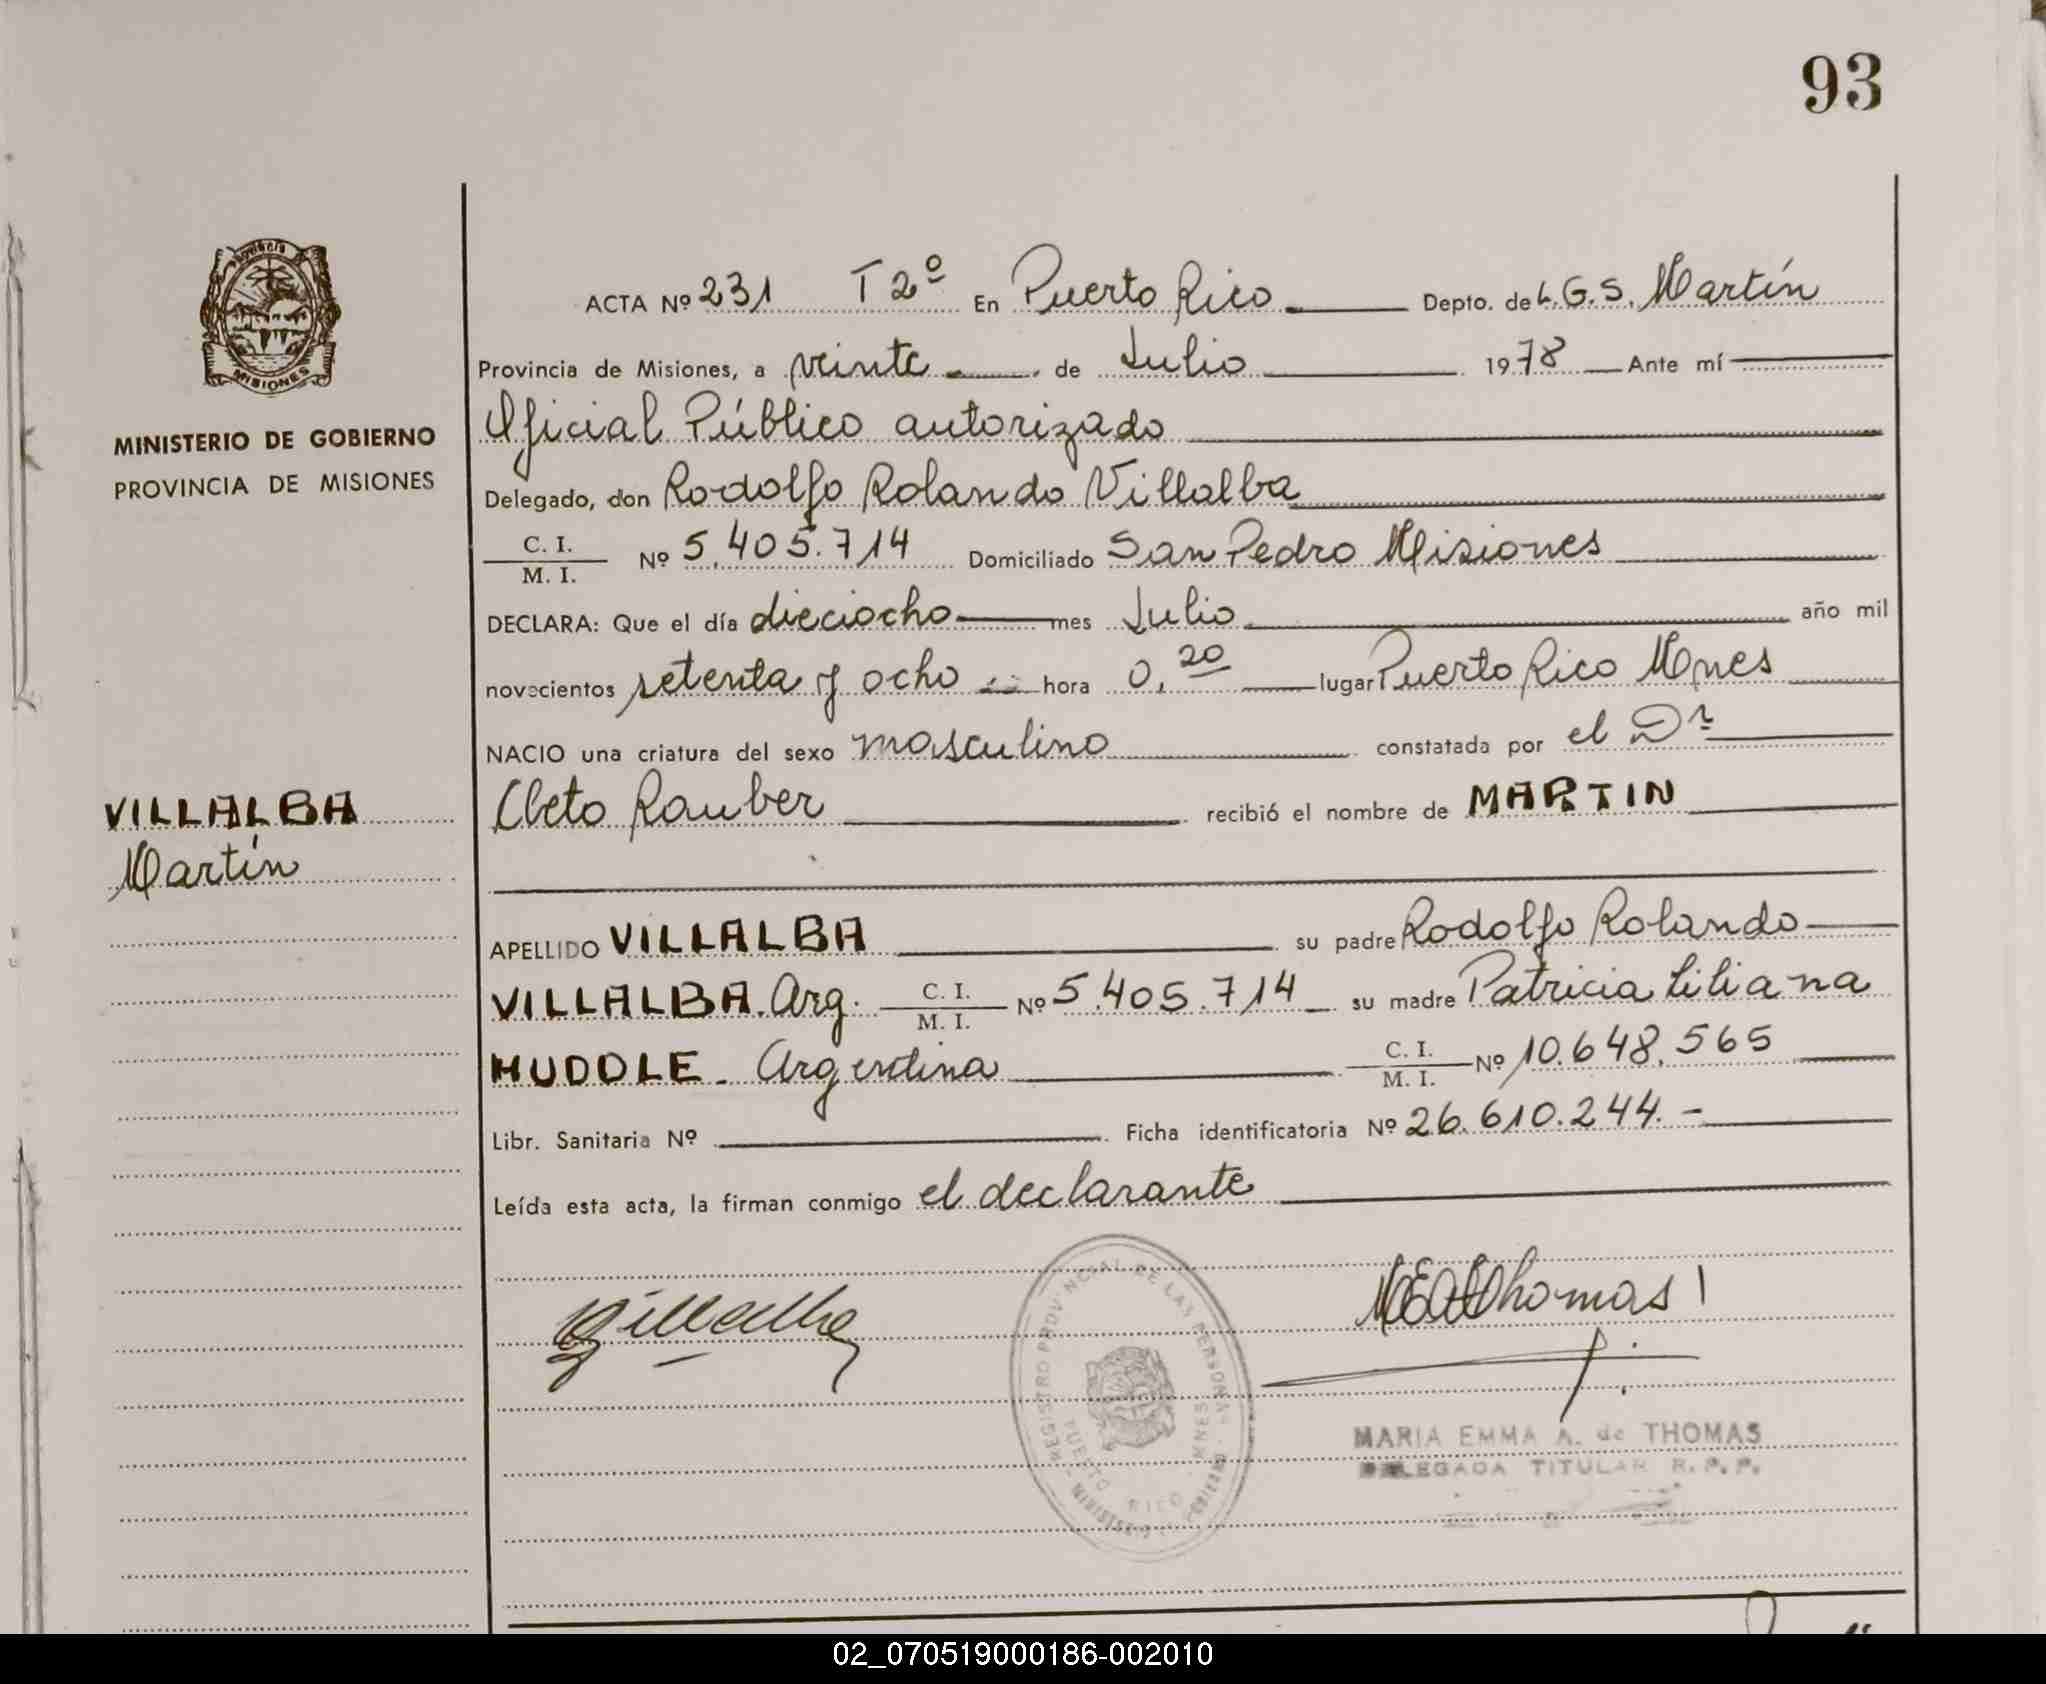 93
Provincia
MISIONES
MINISTERIO DE GOBIERNO
PROVINCIA DE MISIONES
VILLALBA
Martín
ACTA Nº 231 T 2º En Puerto Rico Depto. de L.G.S. Martín
Provincia de Misiones, a veinte de Julio 1978 Ante mí
Oficial Público autorizado
Delegado, don Rodolfo Rolando Villalba
C. I.
M. I. Nº 5.405.714 Domiciliado San Pedro Misiones
DECLARA: Que el día dieciocho mes Julio año mil
novecientos setenta y ocho hora 0,20 lugar Puerto Rico Mnes
NACIO una criatura del sexo masculino constatada por el Dr
Rauber recibió el nombre de MARTIN
APELLIDO VILLALBA su padre Rodolfo Rolando
VILLALBA. Arg. C. I. M. I. Nº 5.405.714 su madre Patricia Liliana
HUDDLE - Argentina C. I. M. I. Nº 10.648.565
Libr. Sanitaria Nº Ficha identificatoria Nº 26.610.244.-
Leída esta acta, la firman conmigo el declarante
Villalba
Thomas
REGISTRO PROVINCIAL DE LAS PERSONAS
PUERTO RICO - MNES
MINISTERIO DE GOBIERNO
MARIA EMMA A. de THOMAS
DELEGADA TITULAR R. P. P.
02_070519000186-002010